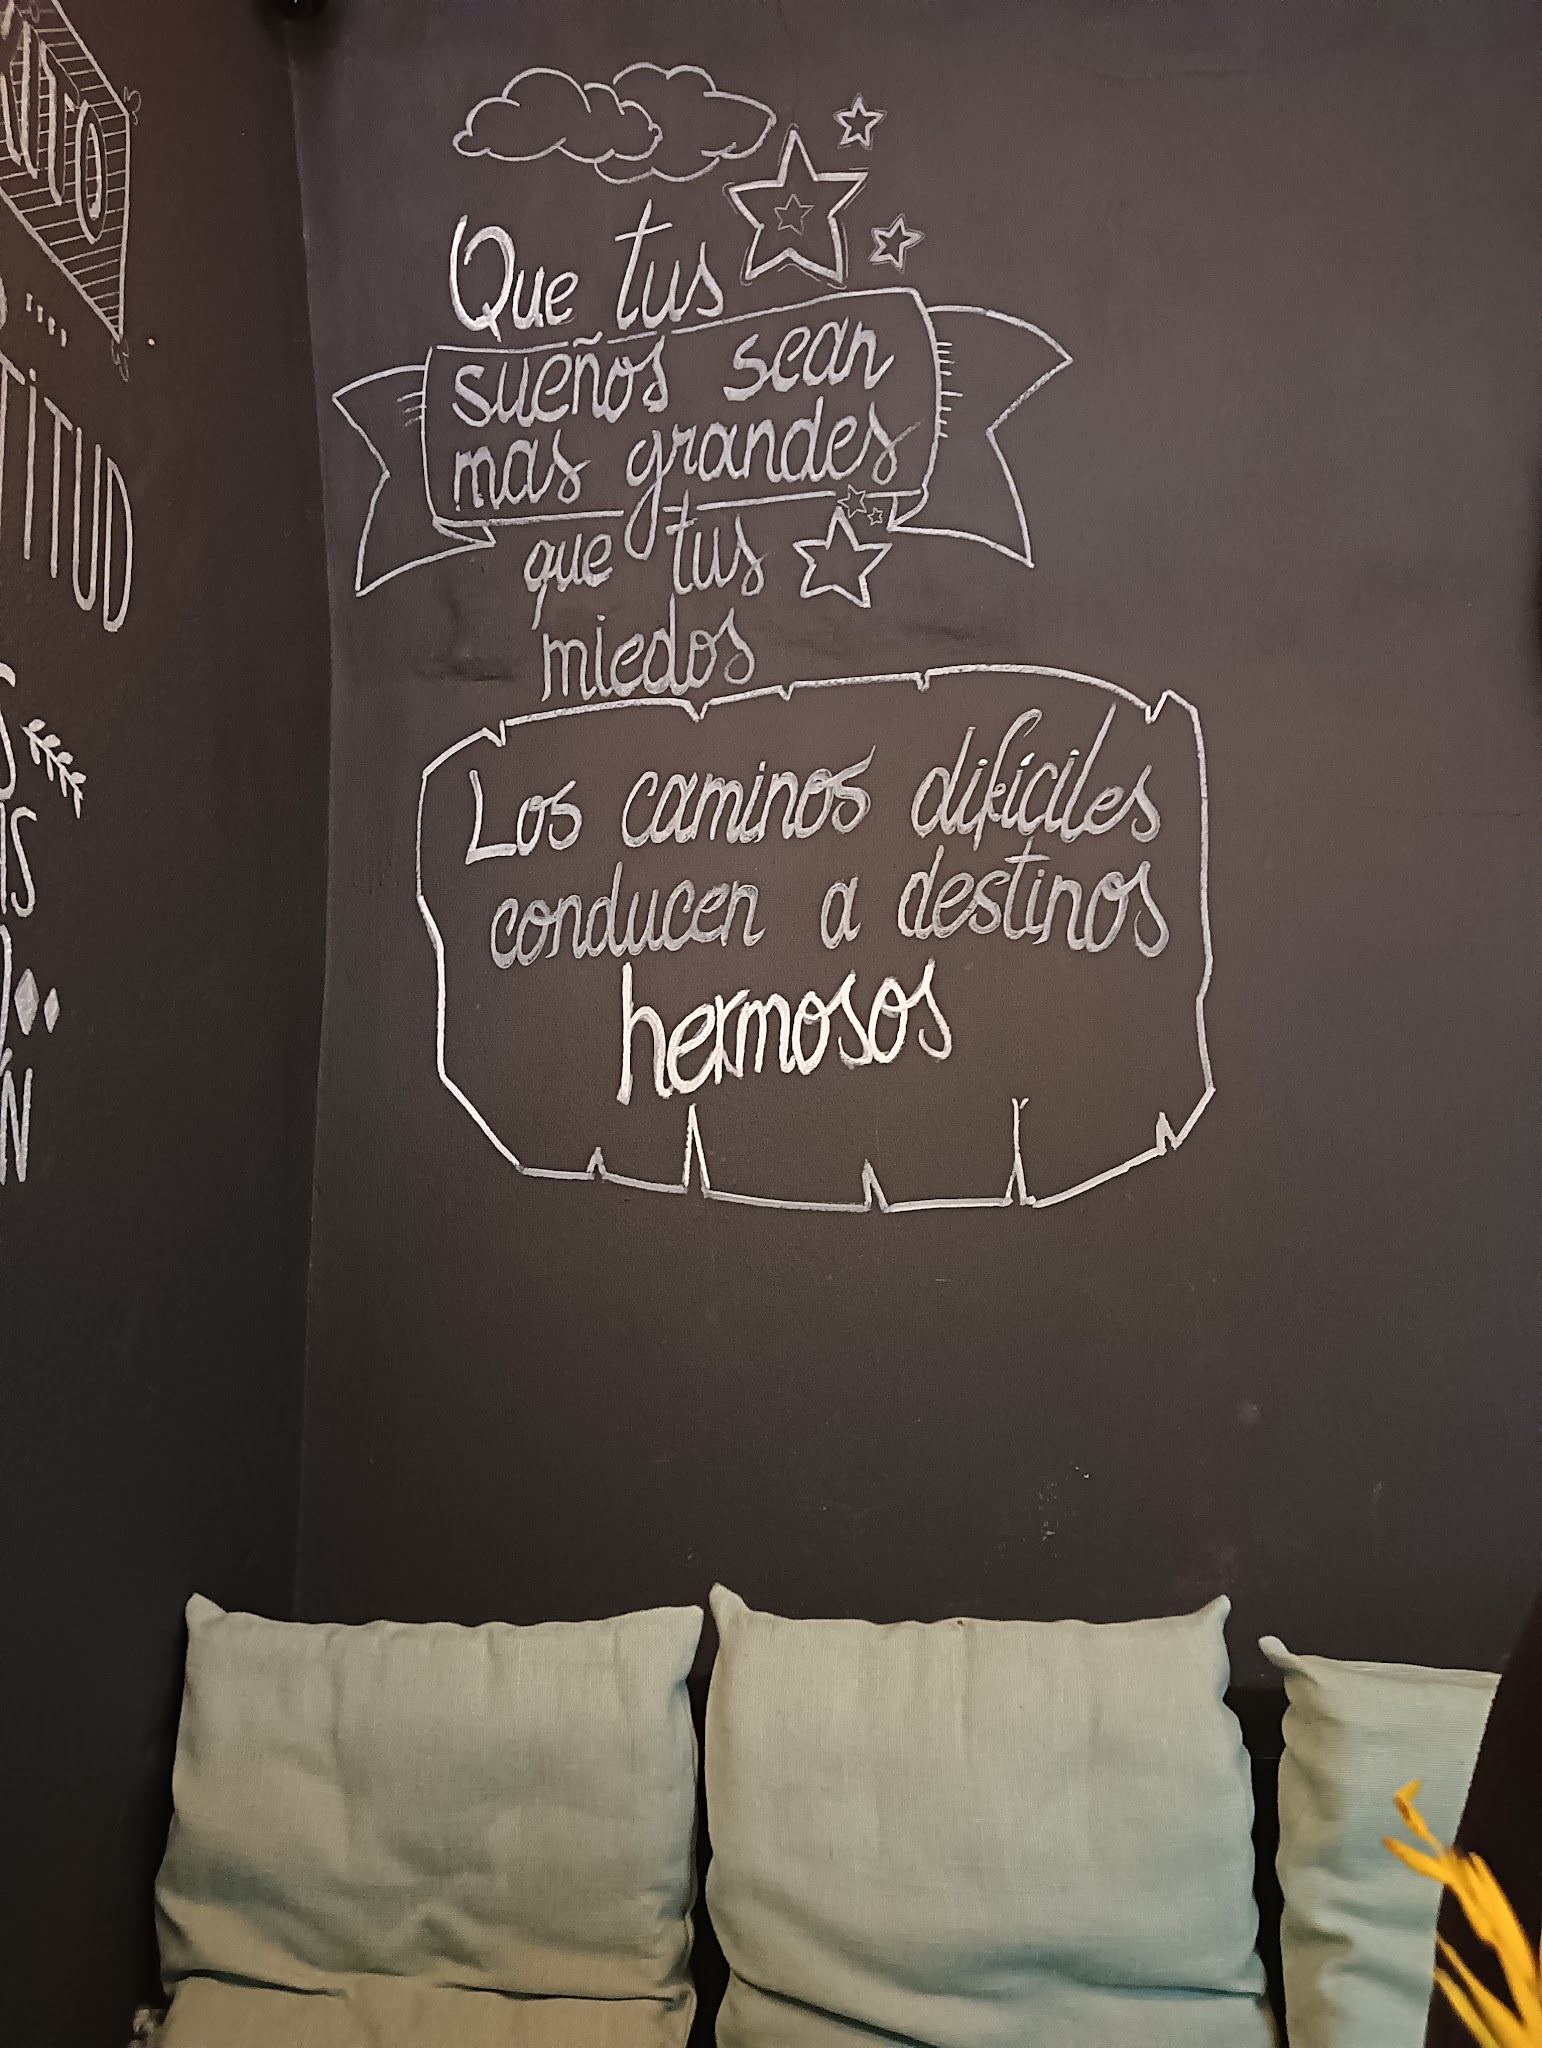 Que tus
sueños sean
mas grandes
que tus
miedos
Los caminos difíciles
conducen a destinos
hermosos